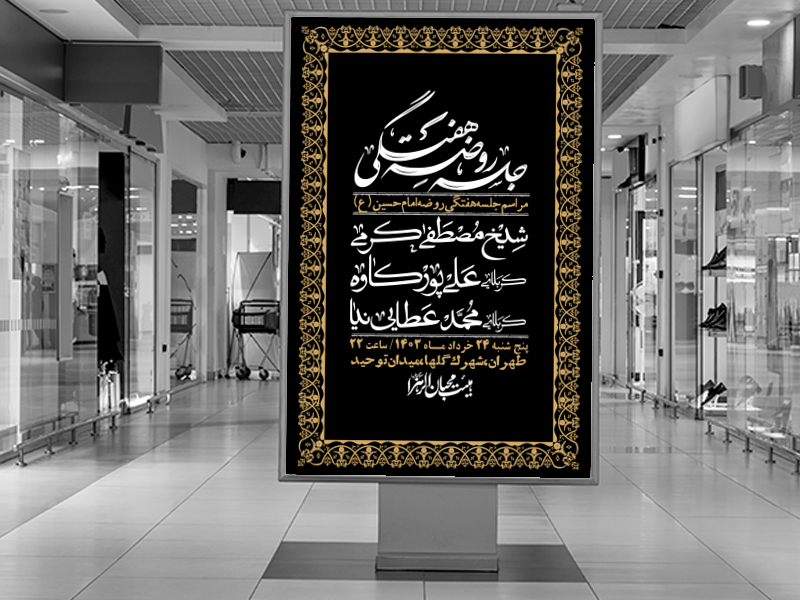 جلسه روضه هفتگی
مراسم جلسه هفتگی روضه امام حسین (ع)
شیخ مصطفی کرمی
کربلایی علی پورکاوه
کربلایی محمد عطایی نیا
پنج شنبه ۲۴ خرداد ماه ۱۴۰۳ / ساعت ۲۲
طهران،شهرک گلها،میدان توحید
هیئت محبان الزهرا